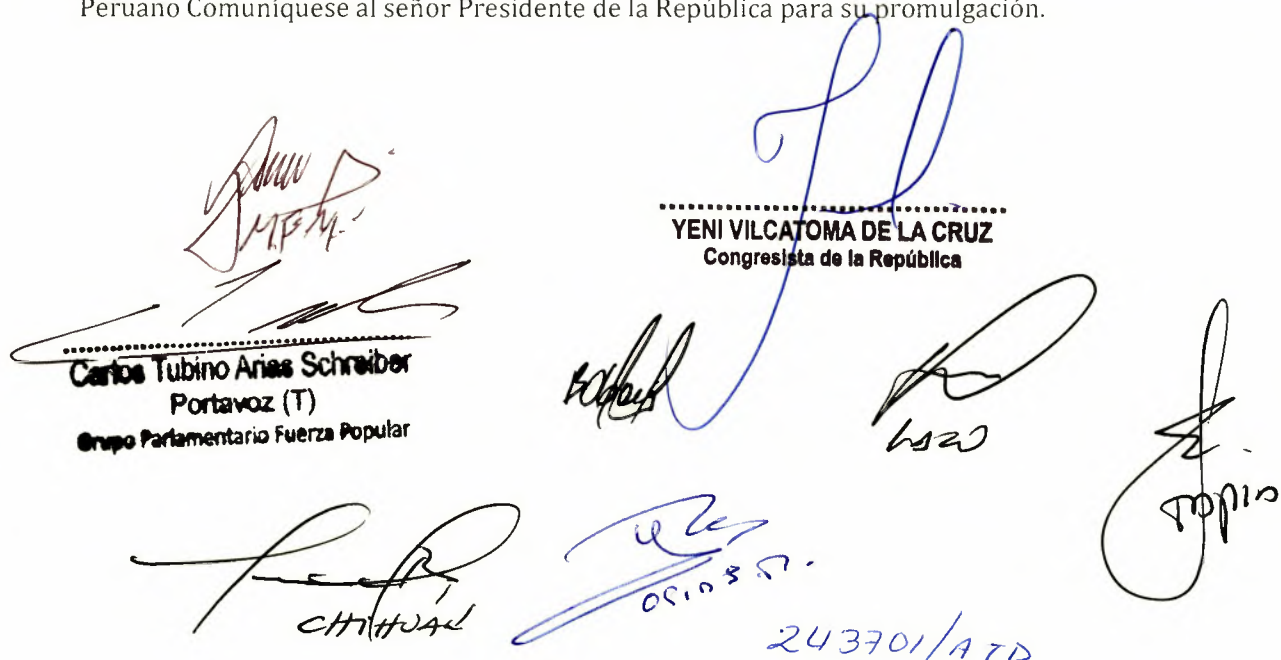 Peruano Comuníquese al señor Presidente de la República para su promulgación.
M.F.M.
YENI VILCATOMA DE LA CRUZ
Congresista de la República
Carlos Tubino Arias Schreiber
Portavoz (T)
Grupo Parlamentario Fuerza Popular
LAZO
TAPIA
CHIHUÁN
243701/ATD